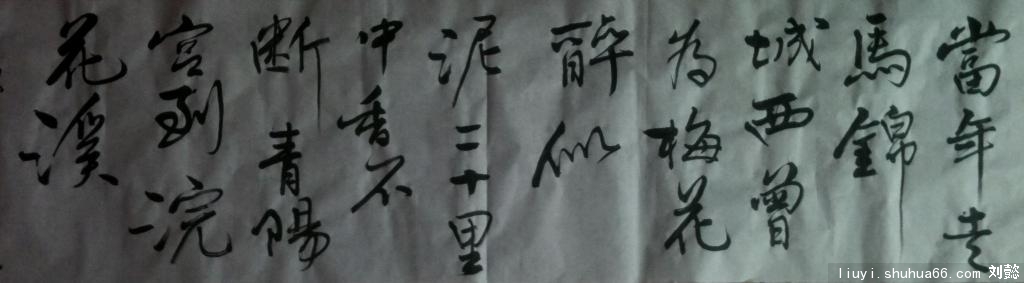 當年走
馬錦
城西曾
為梅花
醉似
泥二十里
中香不
断青陽
宫到浣
花溪
liuyi.shuhua66.com 刘懿